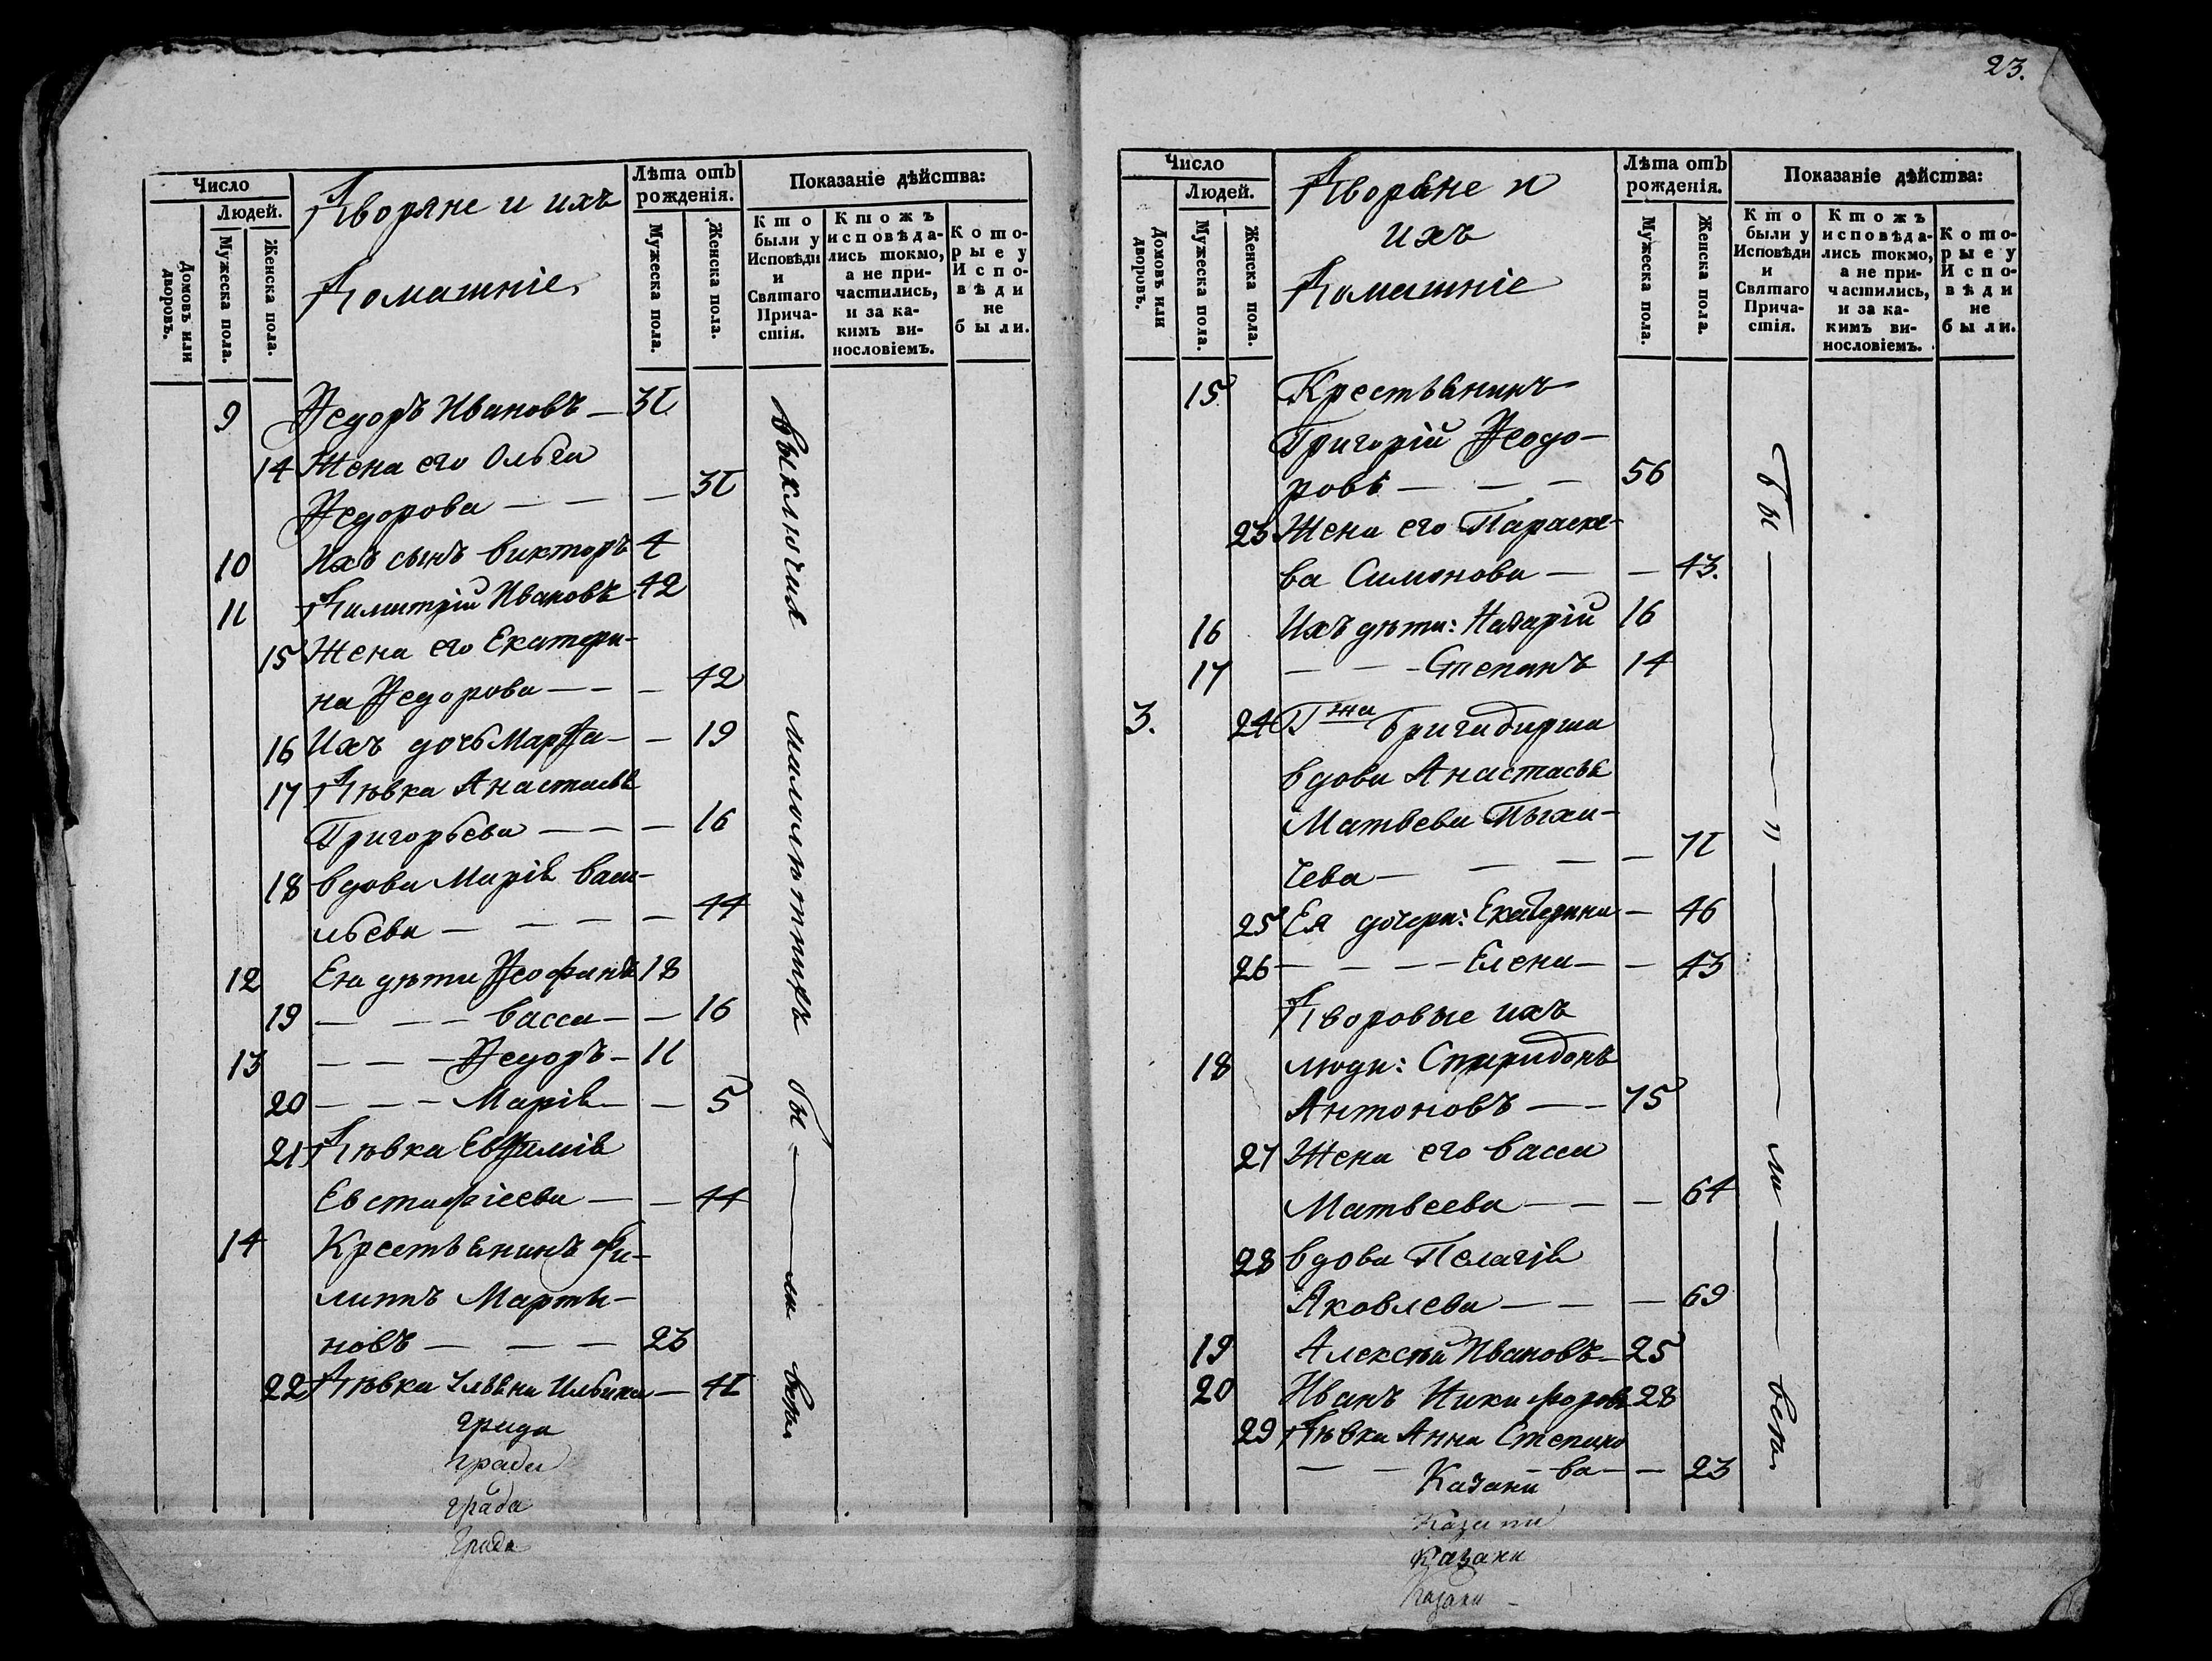 Число
Людей.
Домовъ или дворовъ.
Мужеска пола.
Женска пола.
Дворяне и ихъ
Домашніе
Лѣта отъ рожденія.
Мужеска пола.
Женска пола.
Показаніе дѣйства:
Кто были у Исповѣди и Святаго Причастія.
Ктожъ исповѣдались токмо, а не причастились, и за какимъ винословіемъ.
Которые у Исповѣди не были.
9 Ѳедоръ Ивановъ — 31
14 Жена его Ольга
Ѳедорова — — — 31
10 Ихъ сынъ Викторъ 4
11 Димитрій Ивановъ 42
15 Жена его Екатери-
на Ѳедорова — — — 42
16 Ихъ дочь Марѳа — — 19
17 Дѣвка Анастасья
Григорьева — — — 16
18 Вдова Марія Васи-
льева — — — — 44
12 Ея дѣти Ѳеофанъ 18
19 — — — Васса — — 16
13 — — — Ѳедоръ — 11
20 — — — Марія — — 5
21 Дѣвка Евѳимія
Евстафіева — — 44
14 Крестьянинъ Фи-
липпъ Марты-
новъ — — — 23
22 Дѣвка Ульяна Ильина — 41
Выключая малолѣтнихъ бы — ли вси
града
града
града
града
23.
Число
Людей.
Домовъ или дворовъ.
Мужеска пола.
Женска пола.
Дворяне и
ихъ
Домашніе
Лѣта отъ рожденія.
Мужеска пола.
Женска пола.
Показаніе дѣйства:
Кто были у Исповѣди и Святаго Причастія.
Ктожъ исповѣдались токмо, а не причастились, и за какимъ винословіемъ.
Которые у Исповѣди не были.
15 Крестьянинъ
Григорій Ѳеодо-
ровъ — — — 56
23 Жена его Параске-
ва Симонова — — 43.
16 Ихъ дѣти: Назарій 16
17 — — — Степанъ 14
3. 24 Гжа Бригадирша
вдова Анастасья
Матвеева Пыхи-
чева — — — — 71
25 Ея дочери: Екатерина — 46
26 — — — — Елена — — 43
Дворовые ихъ
18 люди: Спиридонъ
Антоновъ — — 75
27 Жена его Васса
Матвеева — — — 64
28 Вдова Пелагія
Яковлева — — — 69
19 Алексѣй Ивановъ — 25
20 Иванъ Никифоровъ 28
29 Дѣвка Анна Степано
— — ва — — 23
Бы — " — ли — вси.
Казани
Казани
Казани
Казани